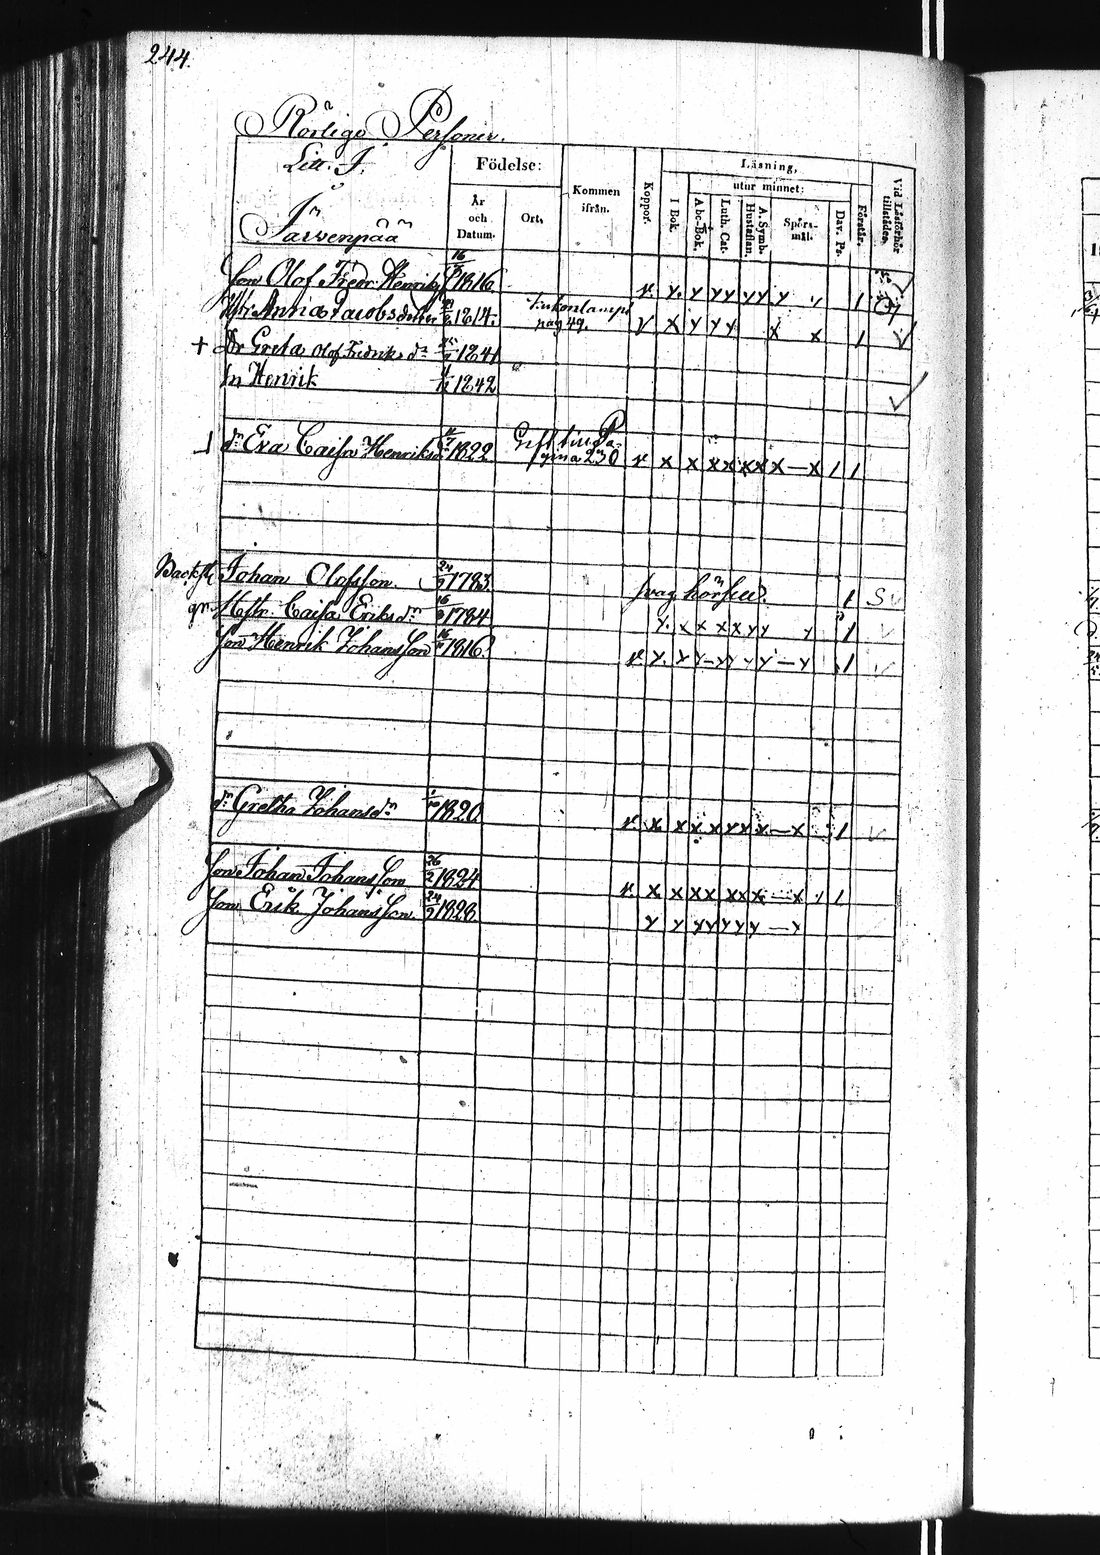 244.
Rörlige Personer.
Litt. J.
Järwenpää
Födelse:
År och Datum.
Ort.
Kommen ifrån.
Koppor.
Läsning,
utur minnet:
I Bok.
Abc-Bok.
Luth. Cat.
A. Symb. Hustaflan.
Spörs-mål.
Dav. Ps.
Förstår.
Vid Läsförhör tillstådes.
Son Olof Fredr. Henriks 1816 v. y. y y y y y y y 1
Hstr Anna Jacobsdotter 1814. pag 49. v x y y y x x 1
+ Dr Greta Olof Fredriks dr 1841
Sn Henrik 1842
dr Eva Caisa Henriksdr 1822 Gift Pagina 230 v x x x x x x x — x 1 1
Johan Olofsson 24 1783 svag hörsel 1 S v
Hstr. Caisa Eriksdr 16 1784 y. x x x x y y y 1 v
Son Henrik Johansson 16 1816 v y. y y – y y y y — y 1 v
dr Gretha Johansdr 1820 v x x x x y x x — x 1 v
Son Johan Johansson 26/2 1824 v. x x x x x x x — x y 1
Son Erik Johansson 24/9 1828 y y y y y y y — y